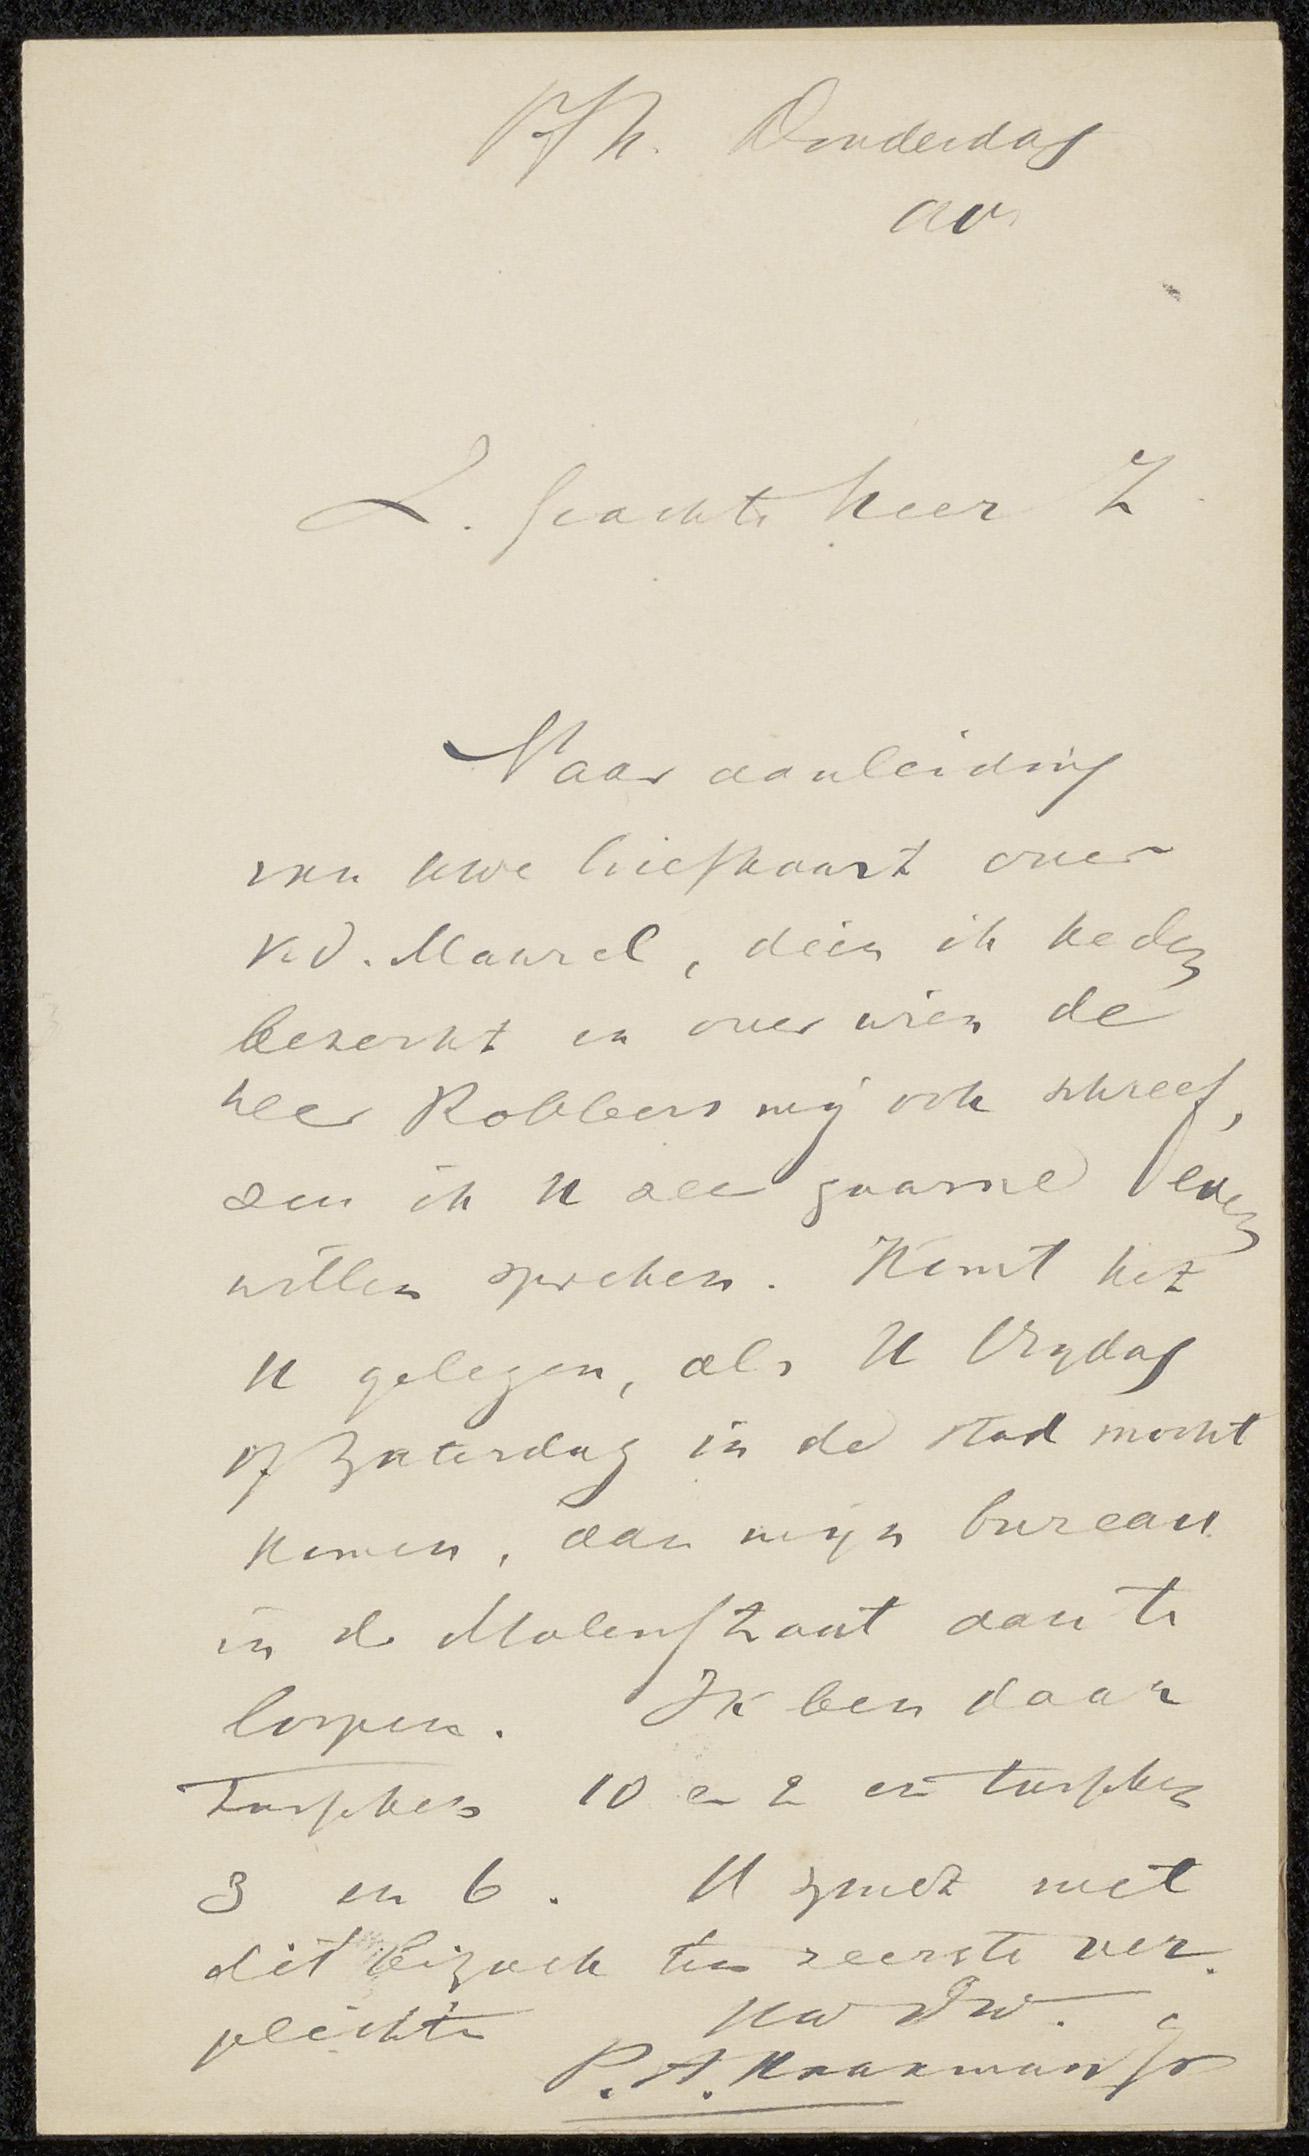 Donderdag
av.
Z. Geachte heer Z
Naar aanleiding
van uwe briefkaart over
v. d. Maurel, dien ik heden
bezocht en over wien de
heer Robbers mij ook schreef,
zou ik U zeer gaarne even
willen spreken. Komt het
U gelegen, als U Vrydag
of Zaterdag in de stad mocht
komen, aan mijn bureau
in de Molenstraat aan te
loopen. Ik ben daar
tusschen 10 en 2 en tusschen
3 en 6. U zoudt met
dit bezoek ten zeerste ver-
plichten Uw Dw.
P. A. Haaxman Jr